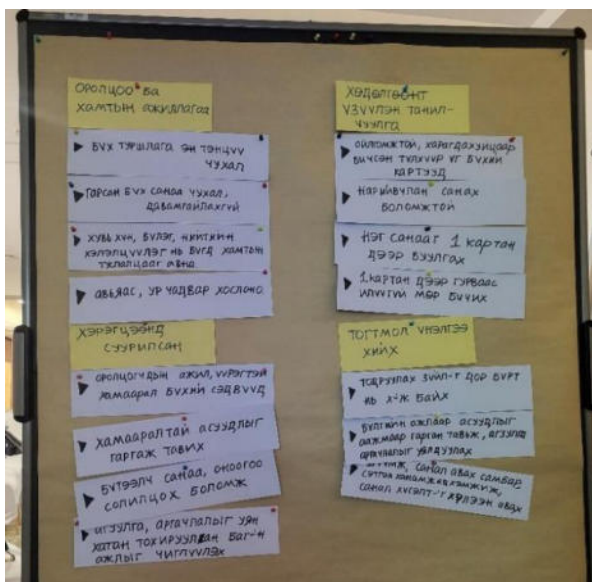 ОРОЛЦОО БА
ХАМТЫН АЖИЛЛАГАА
БҮХ ТУРШЛАГА ЭН ТЭНЦҮҮ
ЧУХАЛ
ГАРСАН БҮХ САНАА ЧУХАЛ,
ДАВАМГАЙЛАХГҮЙ
ХУВЬ ХҮН, БҮЛЭГ, НИЙТИЙН
ХЭЛЭЛЦҮҮЛЭГ НЬ БҮГД ХАМТЫН
ТУЛАЛЦААГ АВНА
АВЬЯАС, УР ЧАДВАР ХОСЛОНО
ХЭРЭГЦЭЭНД
СУУРИЛСАН
ОРОЛЦОГЧДЫН АЖИЛ, ҮҮРЭГТЭЙ
ХАМААРАЛ БҮХИЙ СЭДВҮҮД
ХАМААРАЛТАЙ АСУУДЛЫГ
ГАРГАЖ ТАВИХ
БҮТЭЭЛЧ САНАА, ОНООГОО
СОЛИЛЦОХ БОЛОМЖ
АГУУЛГА, АРГАЧЛАЛЫГ УЯН
ХАТАН ТОХИРУУЛАН БАГ-Н
АЖЛЫГ ЧИГЛҮҮЛЭХ
ХӨДӨЛГӨӨНТ
ҮЗҮҮЛЭН ТАНИЛ-
ЦУУЛГА
ОЙЛГОМЖТОЙ, ХАРАГДАХУЙЦААР
БИЧСЭН ТҮЛХҮҮР ҮГ БҮХИЙ
КАРТУУД
НАРИЙВЧЛАН САНАХ
БОЛОМЖТОЙ
НЭГ САНААГ 1 КАРТАН
ДЭЭР БУУЛГАХ
1 КАРТАН ДЭЭР ГУРВААС
ИЛҮҮГҮЙ МӨР БИЧИХ
ТОГТМОЛ ҮНЭЛГЭЭ
ХИЙХ
ТОДРУУЛАХ ЗҮЙЛ-Г ДОР БҮРТ
НЬ Х-Ж БАЙХ
БҮЛГИЙН АЖЛААР АСУУДЛЫГ
ААЖМААР ГАРГАН ТАВЬЖ, АГУУЛГА
АРГАЧЛАЛЫГ УЯЛДУУЛАХ
САНАЛ АВАХ САМБАР
СЭТГЭЛ ХАНАМЖИЙГ ХЭМЖИЖ,
САНАЛ ХҮСЭЛТ-Г ХҮЛЭЭН АВАХ